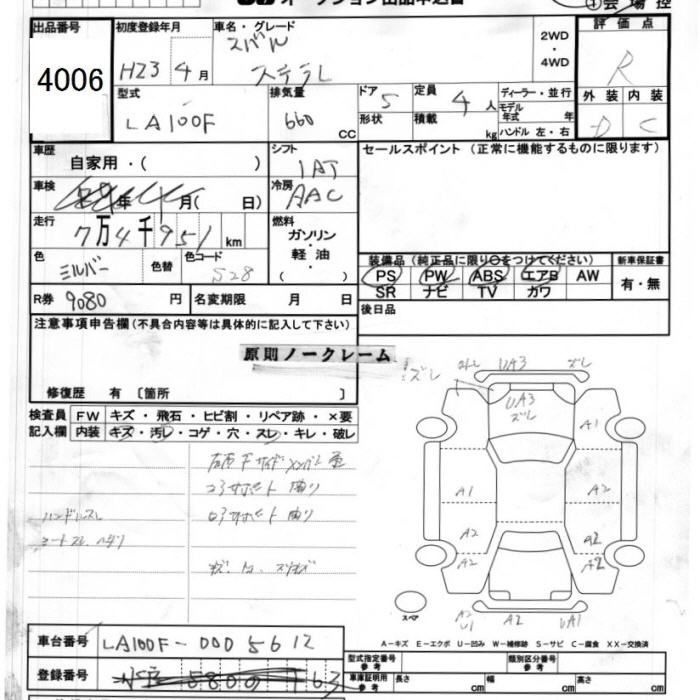 オークション出品申込書
①会場控
出品番号
4006
初度登録年月
H23 4月
車名・グレード
スバル
ステラL
2WD
・
4WD
評価点
R
外装 内装
D C
型式
LA100F
排気量
660 cc
ドア 5
形状
定員 4 人
積載 kg
ディーラー・並行
モデル年式 年式
ハンドル 左・右
車歴
自家用・( )
シフト
IAT
セールスポイント (正常に機能するものに限ります)
車検
年 月( 日)
冷房
AAC
走行
7万4千951 km
燃料
ガソリン
・
軽油
( )
色
ミルバー
色替
色コード
S28
装備品 (純正品に限り○をつけてください)
PS PW ABS エアB AW
SR ナビ TV カワ
新車保証書
有・無
R券 9080 円
名変期限 月 日
後日品
注意事項申告欄 (不具合内容等は具体的に記入して下さい)
原則ノークレーム
修復歴 有 〔箇所 〕
検査員記入欄
FW キズ・飛石・ヒビ割・リペア跡・×要
内装 キズ・汚レ・コゲ・穴・スレ・キレ・破レ
左右Fサイドメンバー
コアサポート曲り
ロアサポート曲り
ハンドルスレ
シートスレ
ズレ UA3 ズレ
UA3
ズレ
A1
A1 A2
A2 A2
A2 A2
A2 U1 A2 UA1
スペア
A-キズ E-エクボ U-凹み W-補修跡 S-サビ C-腐食 XX-交換済
車台番号 LA100F-0005612
登録番号
型式指定番号 参考
類別区分番号 参考
車庫証明用 参考 長さ cm 幅 cm 高さ cm